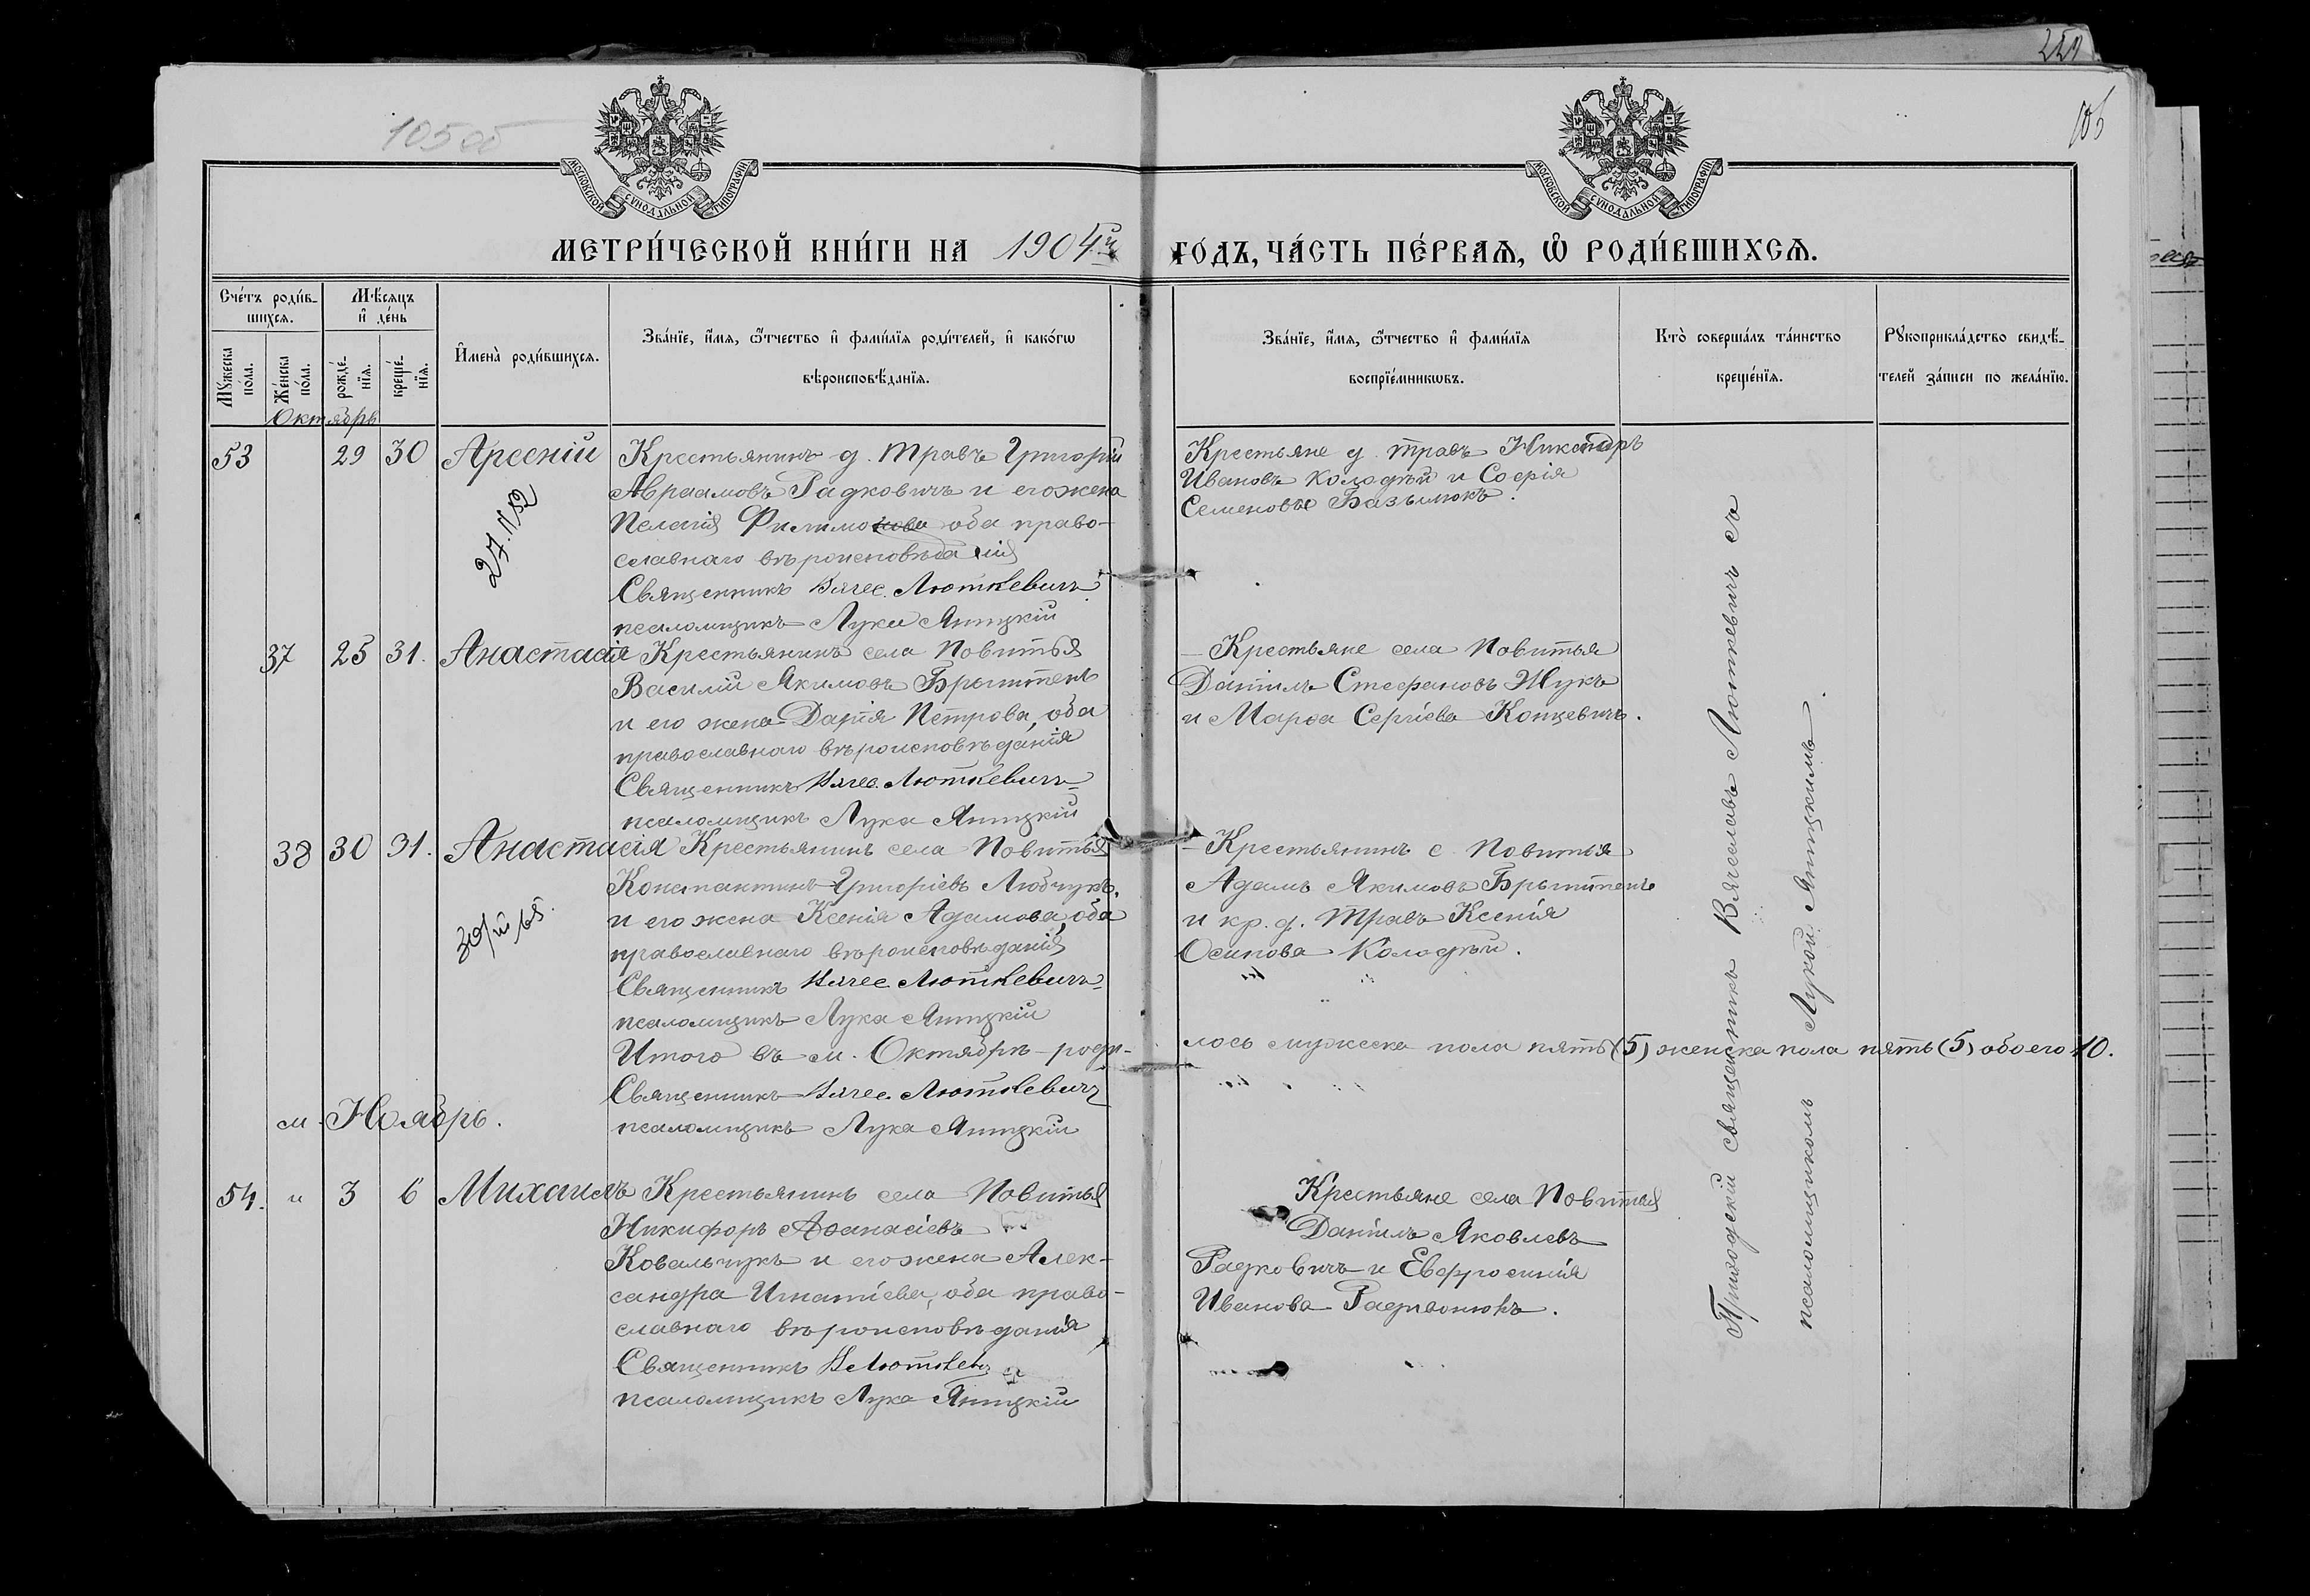 259
105
105 об
МОСКОВСКОЙ СѴНОДАЛЬНОЙ ТИПОГРАФІИ
МОСКОВСКОЙ СѴНОДАЛЬНОЙ ТИПОГРАФІИ
МЕТРИ́ЧЕСКОЙ КНИ́ГИ НА 1904й ГО́ДЪ, ЧА́СТЬ ПЕ́РВАѦ, Ѡ҆ РОДИ́ВШИХСѦ.
Сче́тъ роди́в-
шихсѧ.
Мѣ́сѧцъ
и҆ де́нь
Мꙋ́жеска пола.
Же́нска по́ла.
рожде́-
нїѧ.
креще́-
нїѧ.
И҆мена̀ роди́вшихсѧ.
Зва́нїе, и҆́мѧ, ѻ҆́тчество и҆ фами́лїѧ роди́телей, и҆ како́гѡ
вѣроисповѣ́данїѧ.
Зва́нїе, и҆́мѧ, ѻ҆́тчество и҆ фами́лїѧ
воспрїе́мникѡвъ.
Кто̀ соверша́лъ та́инство
креще́нїѧ.
Рꙋкоприкла́дство свидѣ́-
телей за́писи по жела́нїю.
Октябрь
53 29 30 Арсеній Крестьянинъ д. Травъ Григорій
Авраамовъ Радковичъ и его жена
Пелагія Филимонова оба право-
славнаго вѣроисповѣданія
Священникъ Вячес. Люткевичъ
псаломщикъ Лука Яницкій
27.IV 82
Крестьяне д. Травъ Никандръ
Ивановъ Колодѣй и Софія
Семеновъ Базылюкъ.
37 25 31. Анастасія Крестьянинъ села Повитья
Василій Якимовъ Брынтень
и его жена Дарія Петрова, оба
православнаго вѣроисповѣданія
Священникъ Вячес. Люткевичъ
псаломщикъ Лука Яницкій
Крестьяне села Повитья
Даніилъ Стефановъ Жукъ
и Марѳа Сергіева Концевичъ.
38 30 31. Анастасія Крестьянинъ села Повитья
Константинъ Григоріевъ Любчукъ,
и его жена Ксенія Адамова, оба
православнаго вѣроисповѣданія
Священникъ Вячес Люткевичъ
псаломщикъ Лука Яницкій
Крестьянинъ с. Повитья
Адамъ Якимовъ Брынтень
и кр. д. Травъ Ксенія
Осипова Колодѣй.
Итого въ м. Октябрѣ роди-
лось мужеска пола пять (5) женска пола пять (5) обоего 10.
Священникъ Вячес. Люткевичъ
псаломщикъ Лука Яницкій
м. Ноябрь.
54. " 3 6 Михаилъ Крестьянинъ села Повитья
Никифоръ Аѳанасіевъ
Ковальчукъ и его жена Алек-
сандра Игнатіева, оба право-
славнаго вѣроисповѣданія
Священникъ В Люткевичъ
псаломщикъ Лука Яницкій
Крестьяне села Повитья
Даніилъ Яковлевъ
Радковичъ и Евфросинія
Иванова Радивонюкъ.
Приходскій священникъ Вячеславъ Люткевичъ съ
псаломщикомъ Лукой Яницкимъ.